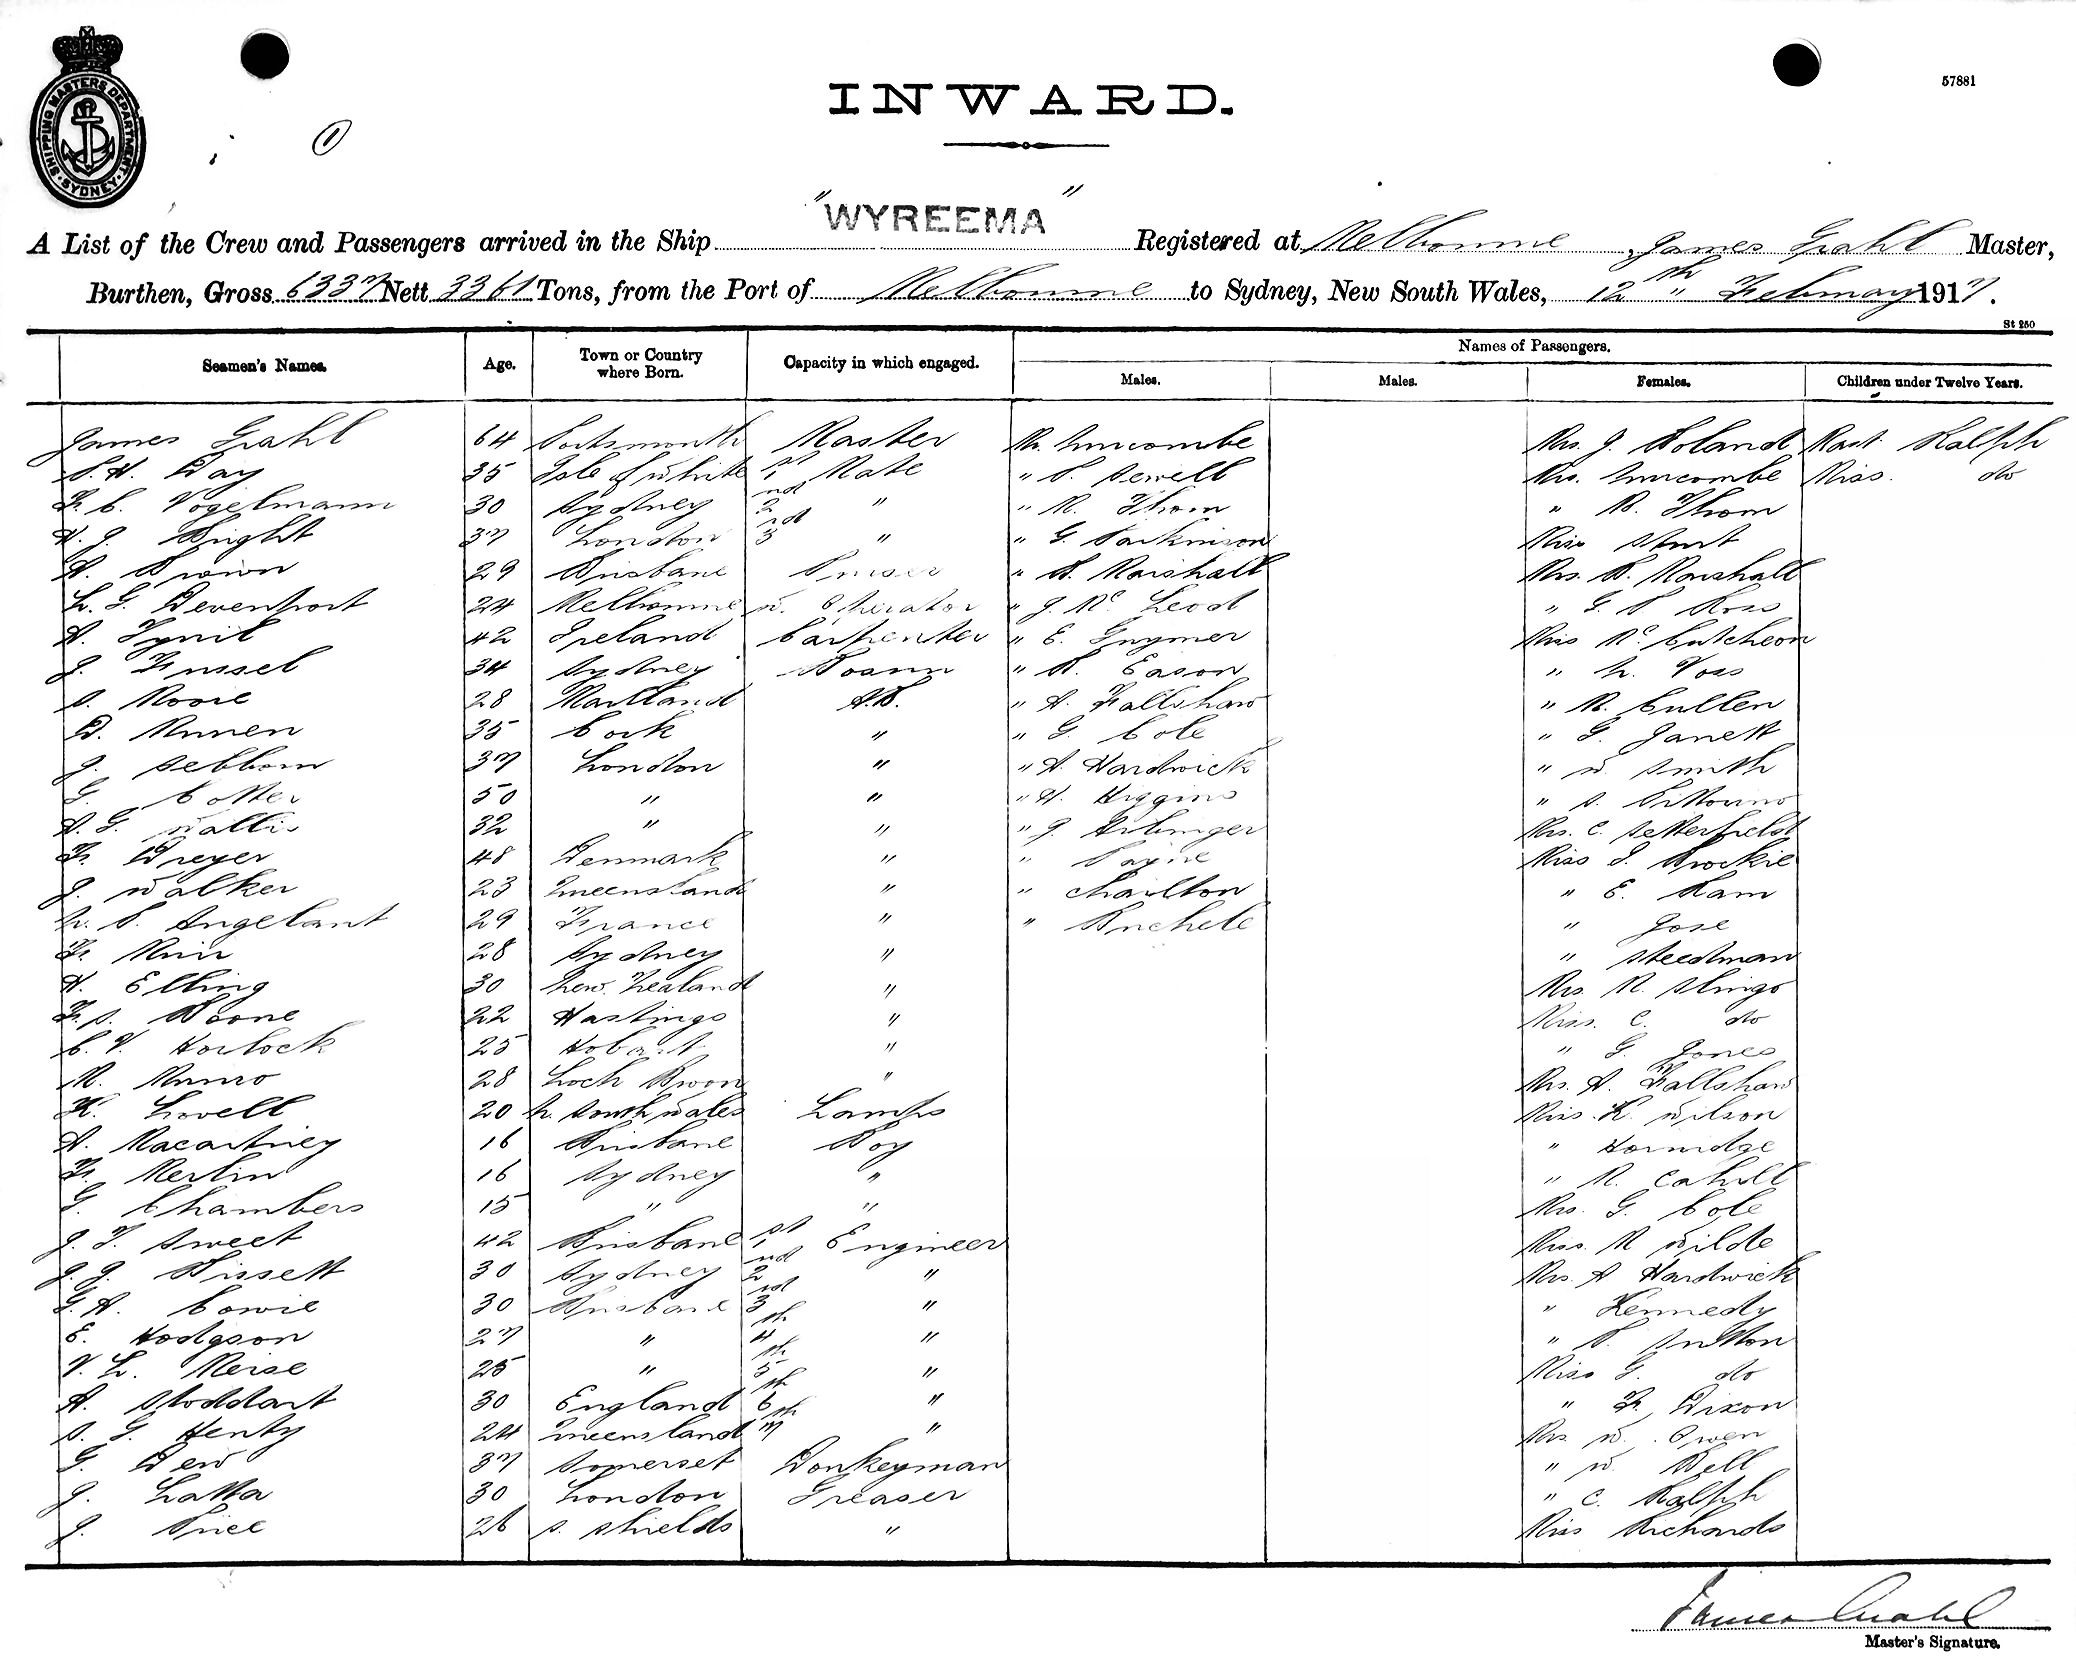 SHIPPING MASTERS DEPARTMENT · SYDNEY ·
1
57881
INWARD.
"WYREEMA"
A List of the Crew and Passengers arrived in the Ship "WYREEMA" Registered at Melbourne, James Grahl Master,
Burthen, Gross 6337 Nett 3361 Tons, from the Port of Melbourne to Sydney, New South Wales, 12th February 1917.
St 250
Seamen's Names. Age. Town or Country where Born. Capacity in which engaged. Names of Passengers.
Males. Males. Females. Children under Twelve Years.
James Grahl 64 Portsmouth Master Mr. Luscombe Mrs. J. Boland Mast. Ralph
P. H. Day 35 Isle of White 1st Mate " P. Sewell Mrs. Luscombe Miss. do
F. C. Vogelmann 30 Sydney 2nd " " R. Thom " R. Thom
H. J. Bright 37 London 3rd " " G. Parkinson Miss Sturt
A. Brown 29 Brisbane Purser " B. Marshall Mrs. B. Marshall
L. G. Devenport 24 Melbourne W. Operator " J. McLeod " G. P. Ross
A. Tynil 42 Ireland Carpenter " E. Guymer Miss McCutcheon
J. Fussel 34 Sydney Bosun " R. Eason " N. Voss
S. Moore 28 Maitland A.B. " A. Fallshaw " M. Cullen
D. Munen 35 Cork " " G. Cole " G. Janett
J. Sebborn 37 London " " A. Hardwick " W. Smith
G. Cotter 50 " " " H. Higgins " S.
A. G. Wallis 32 " " " J. Mrs. C. Setterfield
F. Dreyer 48 Denmark " " Payne Miss I. Brockie
J. Walker 23 Queensland " " Charlton " E. Ham
N. P. Angelant 29 France " " Buchele " Jose
F. Muir 28 Sydney " " Steedman
H. Elling 30 New Zealand " Mrs. M. Stingo
F. S. Boone 22 Hastings " Miss. C. do
C. V. Horlock 25 Hobart " " G. Jones
M. Munro 28 Loch Broom " Mrs. A. Fallshaw
H. Lovell 20 N. South Wales Lamps Miss. K. Wilson
A. Macartney 16 Brisbane Boy " Hornidge
F. Merlin 16 Sydney " " M. Cahill
G. Chambers 15 " " Mrs. G. Cole
J. T. Sweet 42 Brisbane 1st Engineer Miss. M Wilde
J. J. Bissett 30 Sydney 2nd " Mrs. A Hardwick
G. A. Cowie 30 Brisbane 3rd " " Kennedy
E. Hodgson 27 " 4th " " P. Sutton
V. L. Meise 25 " 5th " Miss G. do
A. Stoddart 30 England 6th " " F. Dixon
S. G. Henty 24 Queensland 7th " Mrs. W. Owen
G. Dew 37 Somerset Donkeyman " W. Bell
J. Latta 30 London Greaser " C. Ralph
J. Price 26 S. Shields " Miss Richards
James Grahl
Master's Signature.